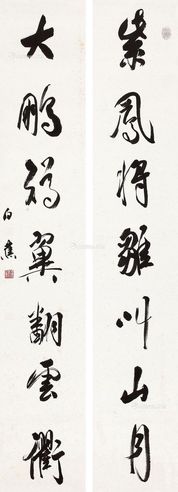 紫鳳将雛叫山月
大鵬鎩翼翻雲衢
白蕉